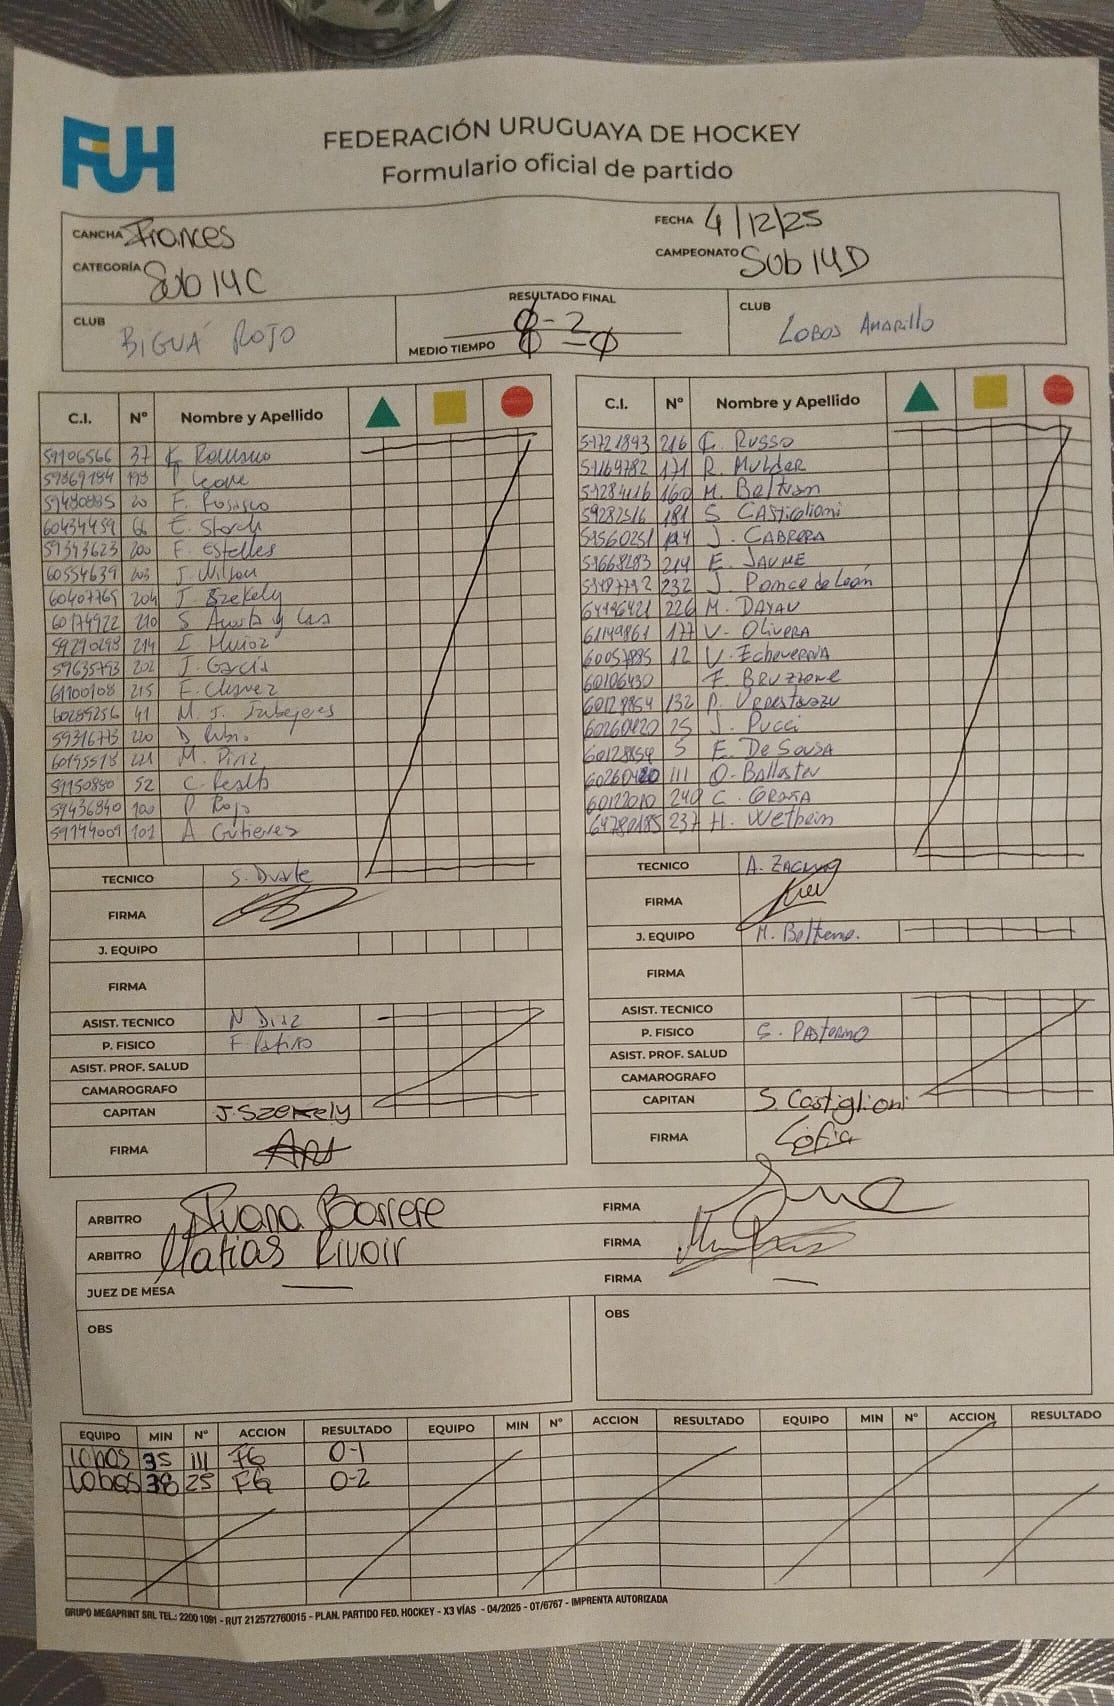 FUH
FEDERACIÓN URUGUAYA DE HOCKEY
Formulario oficial de partido
CANCHA Frances
FECHA 4/12/25
CATEGORÍA Sub 14C
CAMPEONATO Sub 14D
CLUB BIGUÁ ROJO
RESULTADO FINAL 0-2
MEDIO TIEMPO 0-0
CLUB LOBOS AMARILLO
C.I. Nº Nombre y Apellido
37
20 F.
60434459 66 E. Storch
59343623 200 F. Estelles
60554639 203 J. Wilson
60407765 204 J. Szekely
60174922 210 S
214 I. Muñoz
59635793 202 J. García
61100108 215 F. Chavez
60289256 41 M. J.
59316773 220 D. Rubio
60195518 221 M. Piriz
51150880 52 C.
59436840 100 P. Rojo
59144009 101 A Gutierres
TECNICO S. Duarte
FIRMA
J. EQUIPO
FIRMA
ASIST. TECNICO N Diaz
P. FISICO F.
ASIST. PROF. SALUD
CAMAROGRAFO
CAPITAN J. Szekely
FIRMA
C.I. Nº Nombre y Apellido
51721893 216 C. RUSSO
51169782 171 R. MULDER
160 M. Beltran
59282516 181 S CASTIGLIONI
59560251 J. CABRERA
59668283 214 E. JAUME
232 J Ponce de León
64196421 226 M. DAYAU
61149861 177 V. OLIVERA
60057885 12 V. Echeverria
60106430 F. BRUZZONE
132 P.
60260420 25 J. Pucci
60128854 5 F. De Sousa
111 O. Ballester
60122010 240 C.
64780185 237 H. Wetheim
TECNICO A.
FIRMA
J. EQUIPO M.
FIRMA
ASIST. TECNICO
P. FISICO S.
ASIST. PROF. SALUD
CAMAROGRAFO
CAPITAN S. Castiglioni
FIRMA Sofia
ARBITRO Ivana Barrere FIRMA
ARBITRO Matias Rivoir FIRMA
JUEZ DE MESA — FIRMA —
OBS
OBS
EQUIPO MIN Nº ACCION RESULTADO EQUIPO MIN Nº ACCION RESULTADO EQUIPO MIN Nº ACCION RESULTADO
Lobos 35 111 FG 0-1
Lobos 38 25 FG 0-2
GRUPO MEGAPRINT SRL TEL.: 2200 1091 - RUT 212572760015 - PLAN. PARTIDO FED. HOCKEY - X3 VÍAS - 04/2025 - OT/6767 - IMPRENTA AUTORIZADA